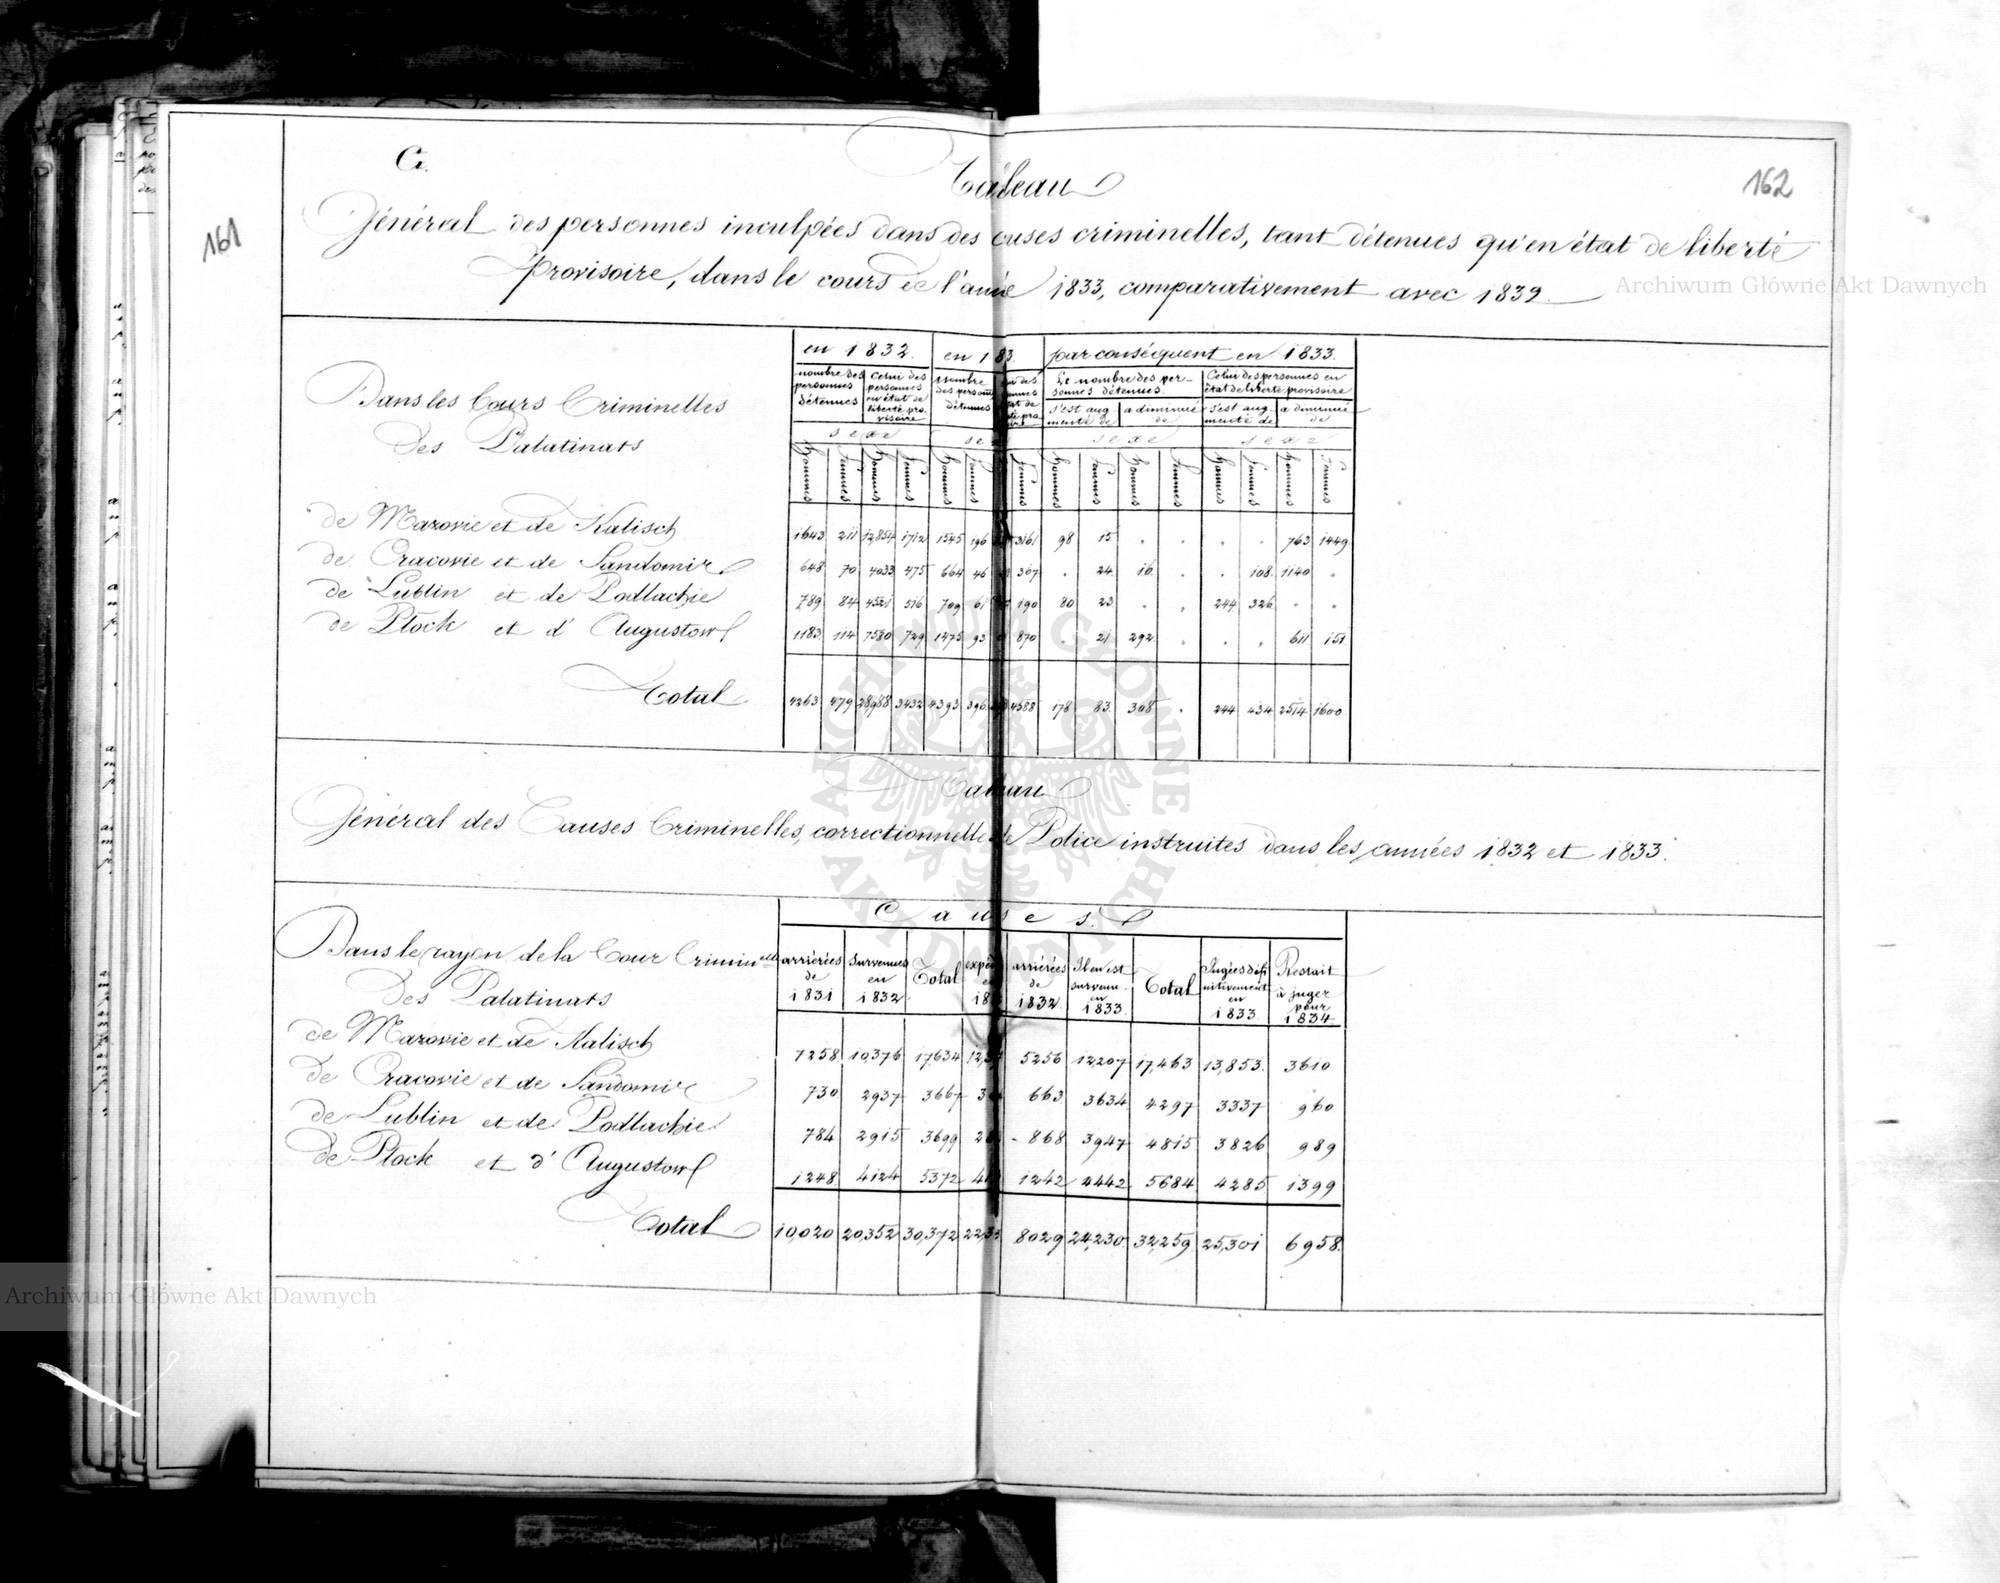 G.
162
161
Tableau
Général des personnes inculpées dans des cuses criminelles, tant détenues qu'en état de liberté
provisoire, dans le cours de l'année 1833, comparativement avec 1832.
Dans les Cours Criminelles
des Palatinats
en 1832. en 183. par conséquent en 1833.
nombre des personnes détenues
Celui des personnes en état de liberté provisoire
nombre des personnes détenues
Le nombre des personnes détenues
Celui des personnes en état de liberté provisoire
s'est augmenté de a diminué de s'est augmenté de a diminué de
sexe sexe sexe
Hommes Femmes Hommes Femmes Hommes Femmes Femmes Hommes Femmes Hommes Femmes Hommes Femmes Hommes Femmes
de Mazovie et de Kalisch 1643 211 12,854 1712 1545 196 3161 98 15 . . . . 763 1449
de Cracovie et de Sandomir 648 70 4033 475 664 46 367 . 24 16 . . 108 1140 .
de Lublin et de Podlachie 789 84 4521 516 709 61 190 80 23 . . 244 326 . .
de Plock et d'Augustow 1183 114 7580 729 1475 93 870 . 21 292 . . . 611 151
Total 4263 479 28,988 3432 4393 396 4588 178 83 308 . 244 434 2514 1600
Tableau
Général des Causes Criminelles, correctionnelles de Police instruites dans les années 1832 et 1833.
Causes.
Dans le rayon de la Cour Criminelle
des Palatinats
arriérées de 1831
Survenues en 1832
Total
arriérées de 1832
Il en est survenu en 1833
Total
Jugées définitivement en 1833
Restait à juger pour 1834
de Mazovie et de Kalisch 7258 10,376 17,634 5256 12,207 17,463 13,853 3610
de Cracovie et de Sandomir 730 2937 3667 663 3634 4297 3337 960
de Lublin et de Podlachie 784 2915 3699 868 3947 4815 3826 989
de Plock et d'Augustow 1248 4124 5372 1242 4442 5684 4285 1399
Total 10,020 20,352 30,372 8029 24,230 32,259 25,301 6958
Archiwum Główne Akt Dawnych
Archiwum Główne Akt Dawnych
ARCHIWUM GŁÓWNE AKT DAWNYCH